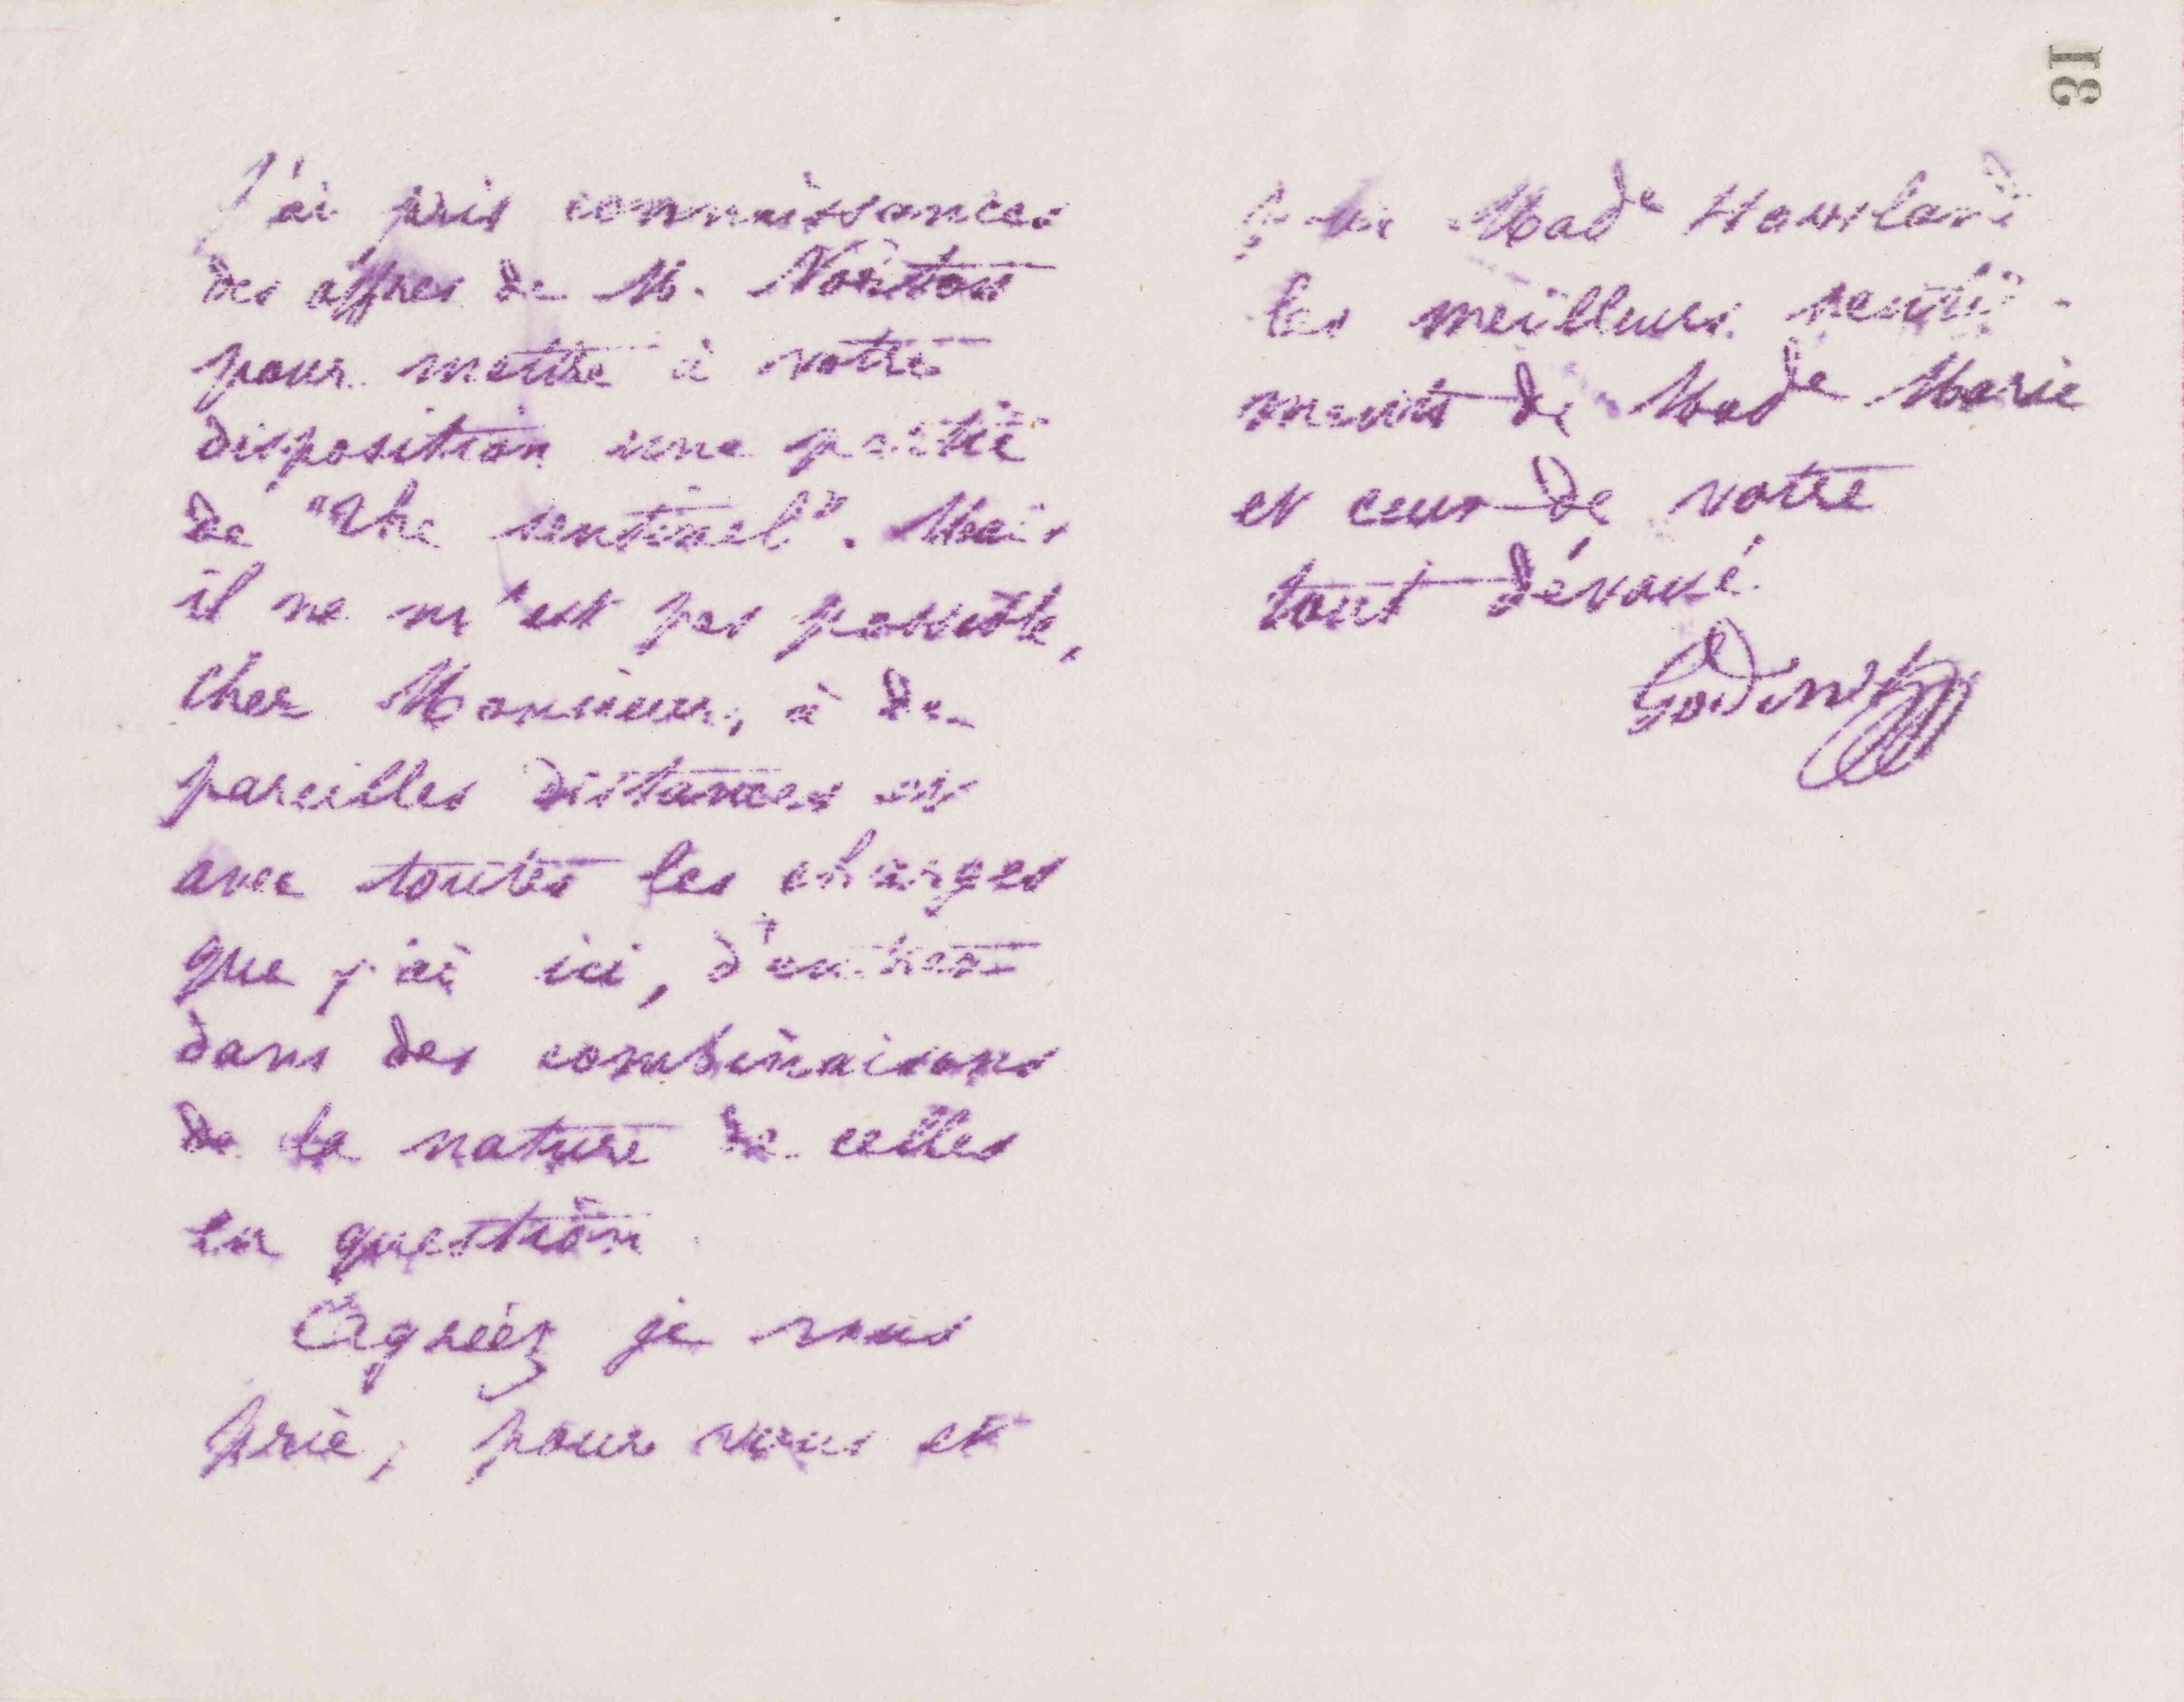 31
J'ai pris connaissance
des offres de M. Norton
pour mettre à votre
disposition une partie
de "The sentinel". Mais
il ne m'est pas possible,
cher Monsieur, à de
pareilles distances et
avec toutes les charges
que j'ai ici, d'entrer
dans des combinaisons
de la nature de celles
en question.
Agréez je vous
prie, pour vous et
pour Made Howland
les meilleurs senti-
ments de Made Marie
et ceux de votre
tout dévoué.
Godin